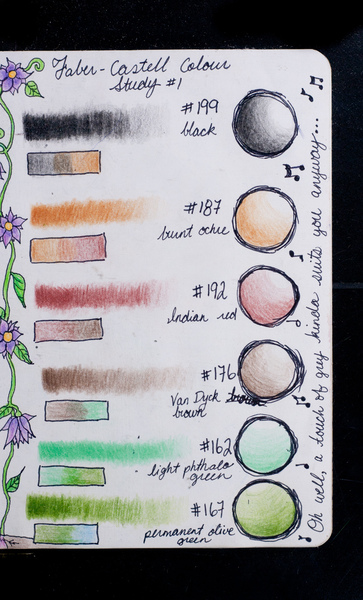 Faber-Castell Colour
Study #1
#199
black
#187
burnt ochre
#192
Indian red
#176
Van Dyck
brown
#162
light phthalo
green
#167
permanent olive
green
Oh well, a touch of grey kinda suits you anyway...